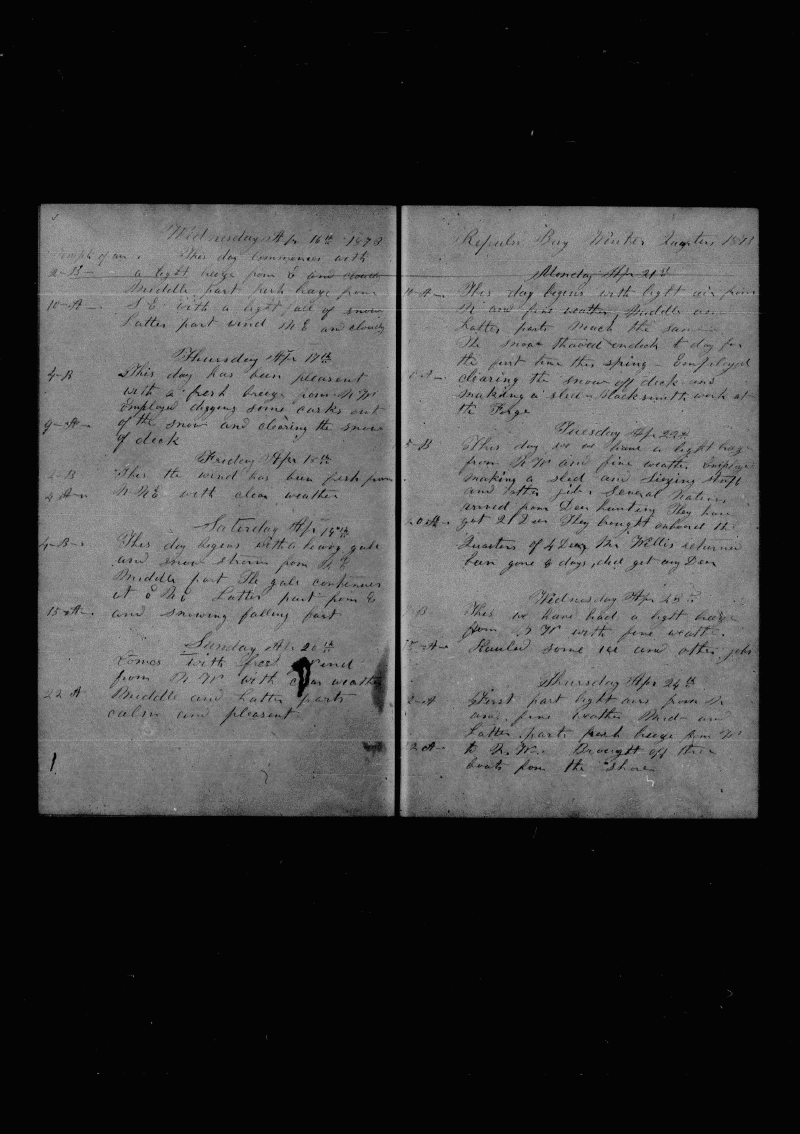 Wednesday Apr 16th 1873
Temptr of air. This day commences with
2-B- a light breeze from E and cloudy
Middle part fresh breeze from
10-A- S E with a light fall of snow
Latter part wind N E and cloudy
Thursday Apr 17th
4-B This day has been pleasant
with a fresh breeze from N W
Employed digging some casks out
9-A- of the snow and clearing the snow
of deck
Friday Apr 18th
2-B This the wind has been fresh from
4 A- N N E with clear weather
Saturday Apr 19th
4-B- This day begins with a heavy gale
and snow storm from N E
Middle part The gale continues
at N E Latter part from E
15-A- and snowing falling fast
Sunday Apr 20th
Comes with fresh wind
from N W with clear weather
22-A Middle and Latter parts
calm and pleasant
Repulse Bay Winter Quarters 1873
Monday Apr 21st
-A- This day begins with light air from
N and fine weather, Middle and
Latter parts Much the same
The snow thawed on deck to day for
the first time this spring - Employed
-A- clearing the snow off deck and
making a sled - Blacksmith work at
the Forge
Tuesday Apr 22d
-B This day we have a light
from N W and fine weather Employed
making a sled and
and other jobs Several Natives
arrived from Deer hunting They have
20 A- got 21 Deer They brought onboard the
Quarters of 4 Deer Mr Willis returned
been gone 8 days, did get any Deer
Wednesday Apr 23d
B This we have had a light breeze
from N W with fine weather
-A- Hauled some ice and other jobs
Thursday Apr 24th
-A First part light airs from N
and fine weather Mid and
Latter parts fresh breeze from W
2 A- to N.W. Brought off three
boats from the Shore